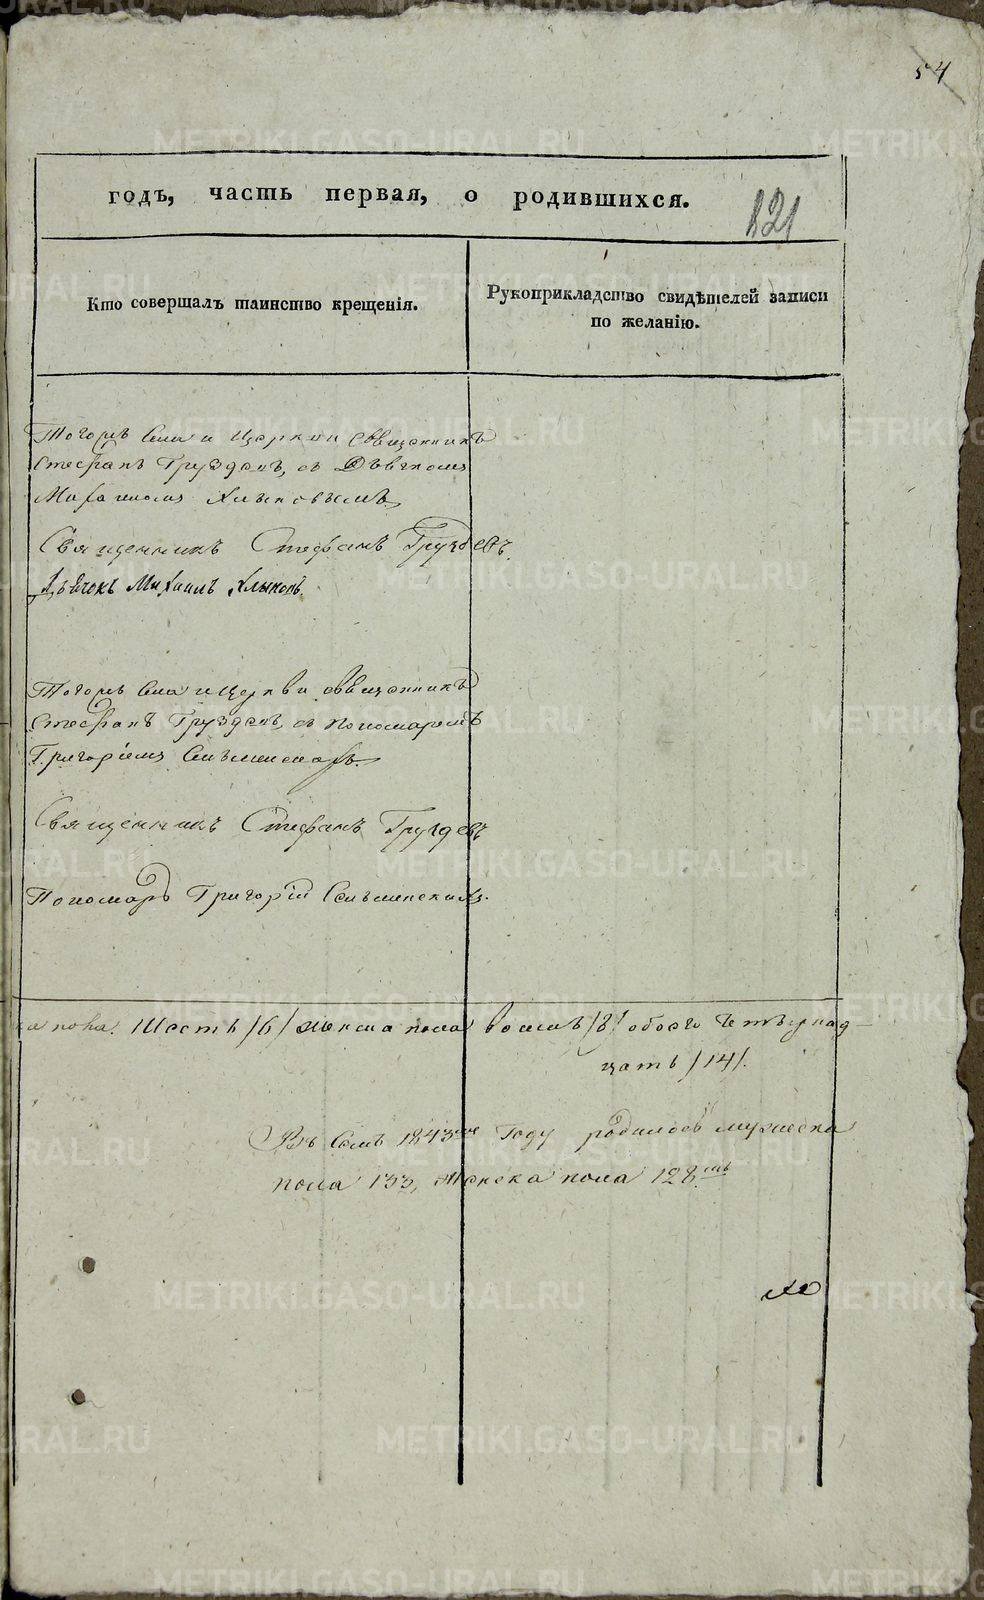 54
годъ, часть первая, о родившихся.
121
Кто совершалъ таинство крещенія.
Рукоприкладство свидѣтелей записи
по желанію.
Тогожъ Села и Церкви Священникъ
Стефанъ Груздевъ, съ Дьячкомъ
Михаиломъ Хлыновымъ
Священникъ Стефанъ Груздевъ.
Дьячокъ Михаилъ Хлыновъ
Тогожъ Села и Церкви священникъ
Стефанъ Груздевъ, съ Пономаремъ
Григоріемъ
Священникъ Стефанъ Груздевъ
Пономарь Григорій
ка пола. Шесть /6/ женска пола восемь /8/ обоего четырнад-
цать /14/.
Въ семъ 1843мъ Году родилось мужеска
пола 133, Женска пола 128.мь
METRIKI.GASO-URAL.RU